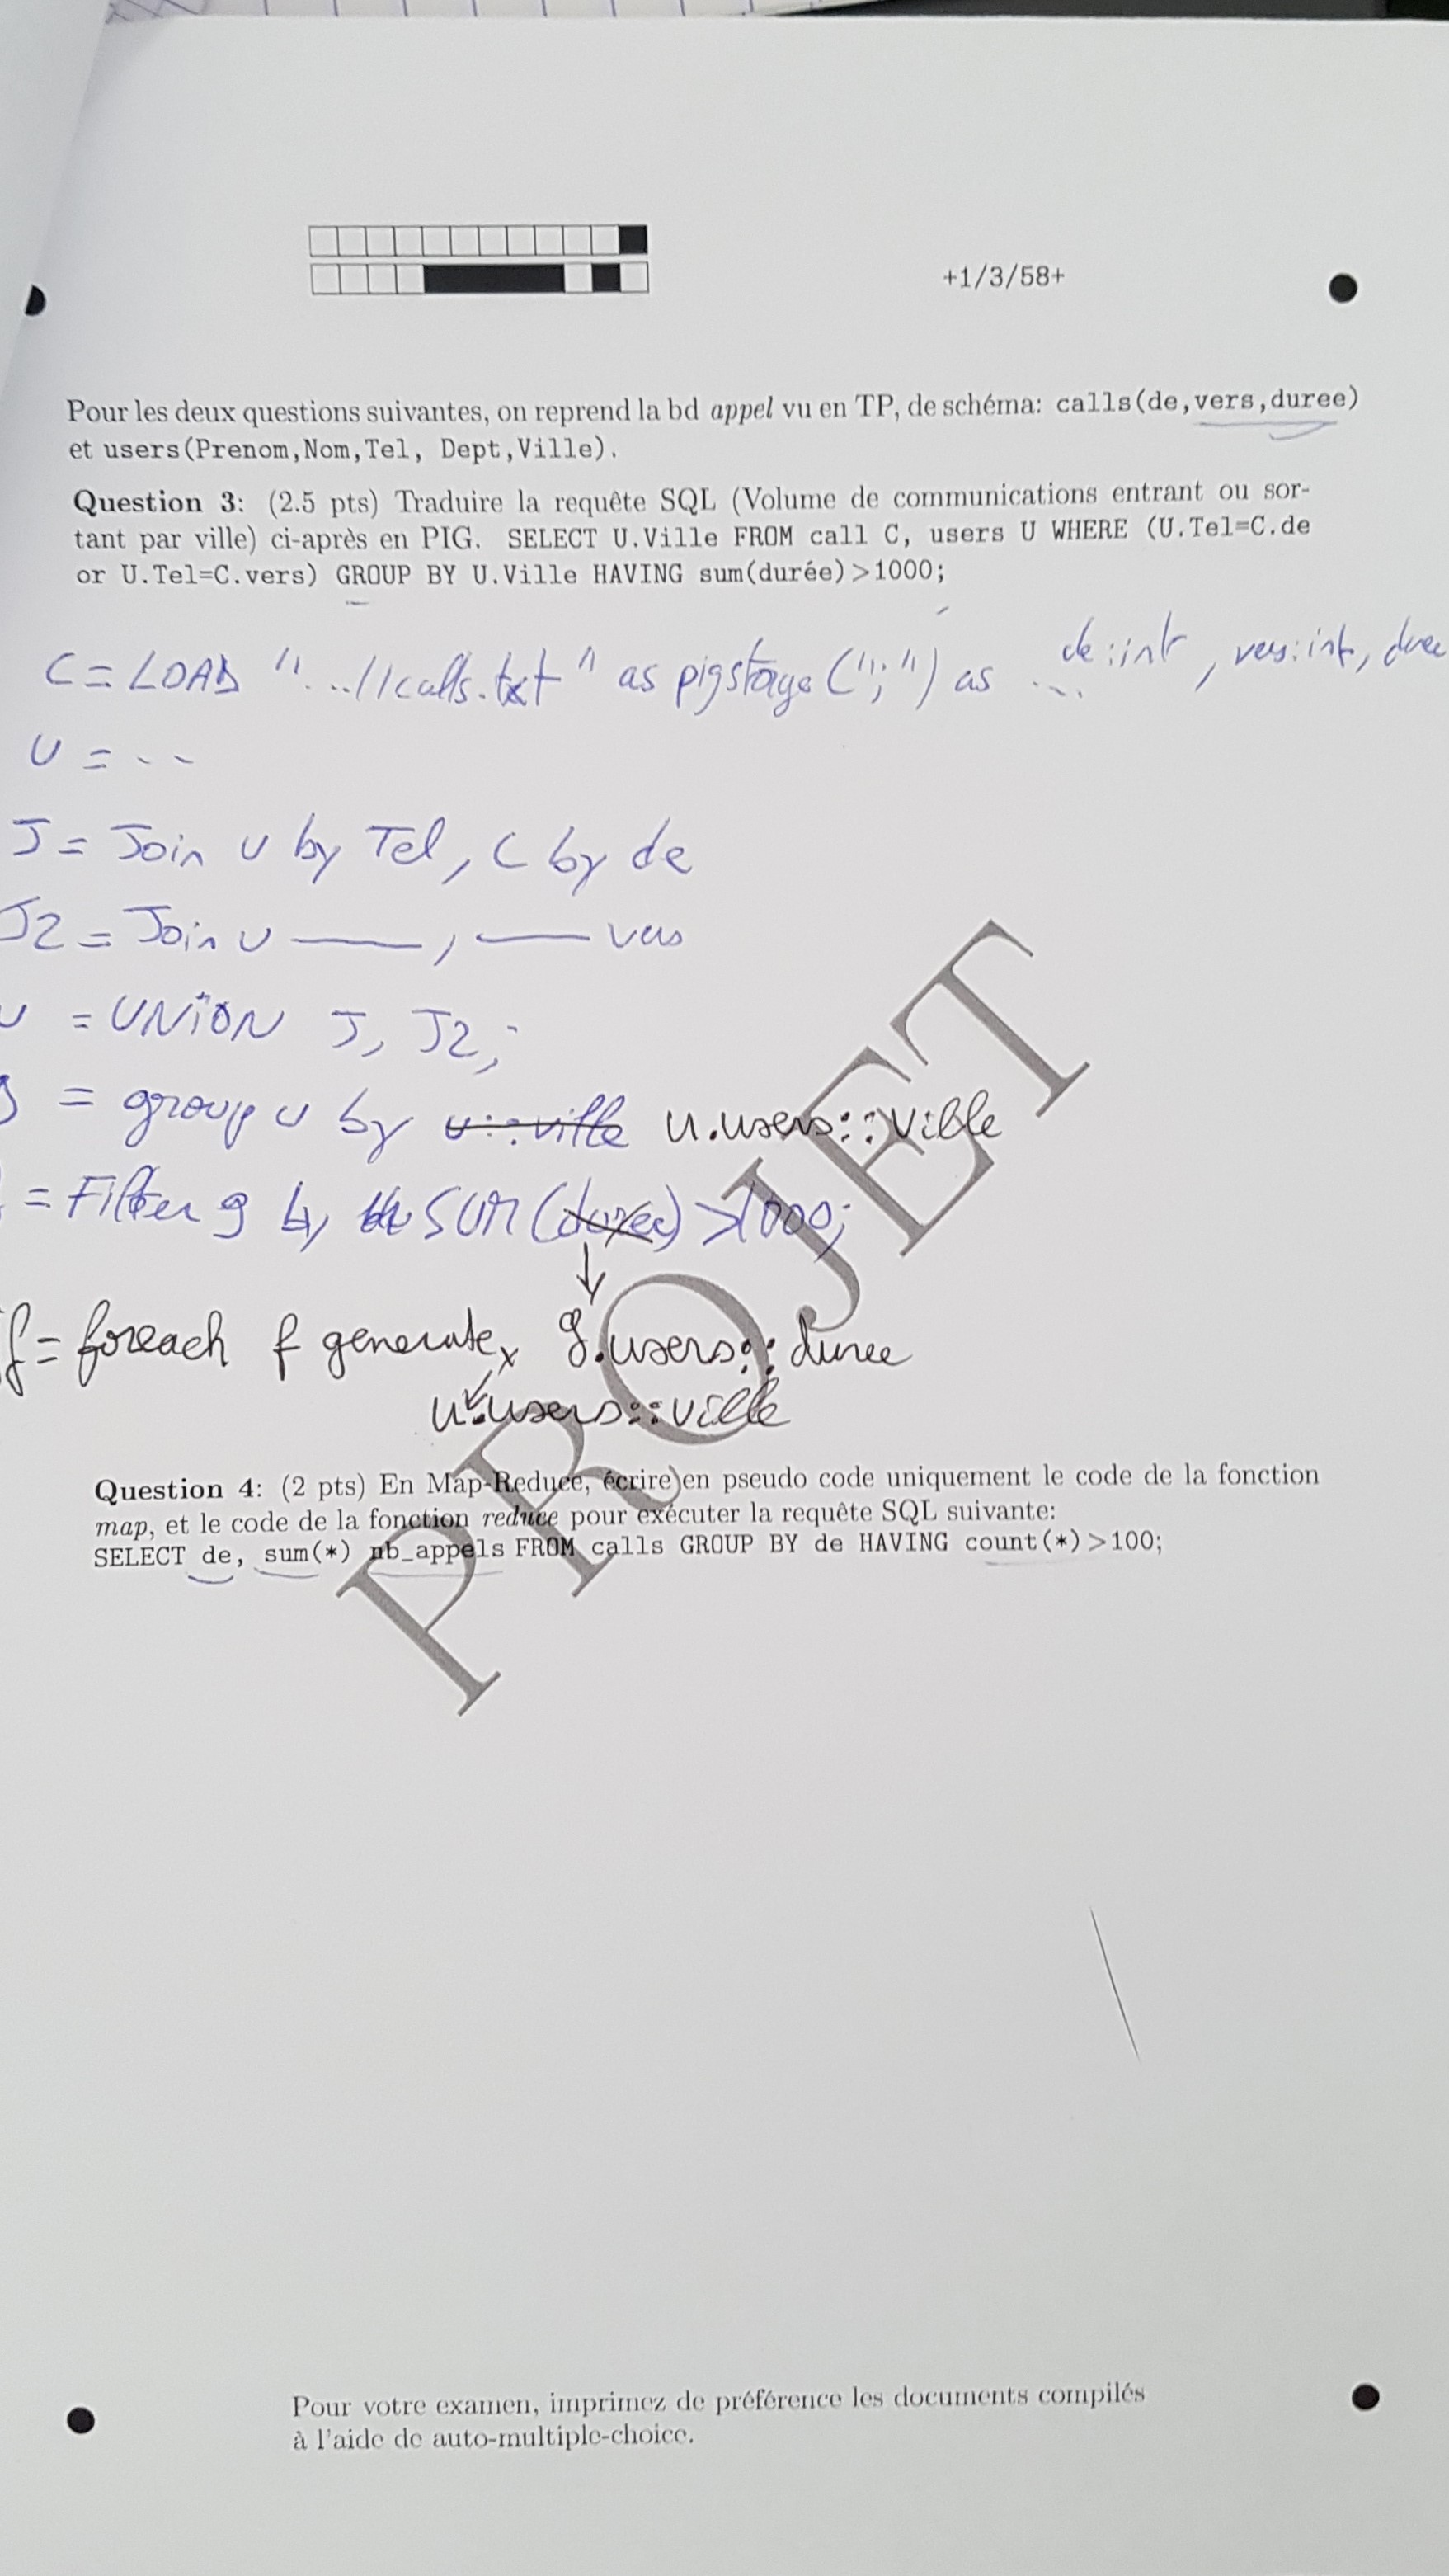 +1/3/58+
Pour les deux questions suivantes, on reprend la bd appel vu en TP, de schéma: calls(de,vers,duree)
et users(Prenom,Nom,Tel, Dept,Ville).
Question 3: (2.5 pts) Traduire la requête SQL (Volume de communications entrant ou sor-
tant par ville) ci-après en PIG. SELECT U.Ville FROM call C, users U WHERE (U.Tel=C.de
or U.Tel=C.vers) GROUP BY U.Ville HAVING sum(durée)>1000;
de:int, vers:int, duree
C = LOAD "...//calls.txt" as pigstorage(";") as ...
U = ..
J = Join U by Tel, C by de
J2 = Join U —, — vers
U = UNION J, J2;
= group U by u::ville u.users::ville
= Filter g by SUM(duree) >1000;
f = foreach f generate g.users::duree
u.users::ville
Question 4: (2 pts) En Map-Reduce, écrire en pseudo code uniquement le code de la fonction
map, et le code de la fonction reduce pour exécuter la requête SQL suivante:
SELECT de, sum(*) nb_appels FROM calls GROUP BY de HAVING count(*)>100;
PROJET
Pour votre examen, imprimez de préférence les documents compilés
à l'aide de auto-multiple-choice.